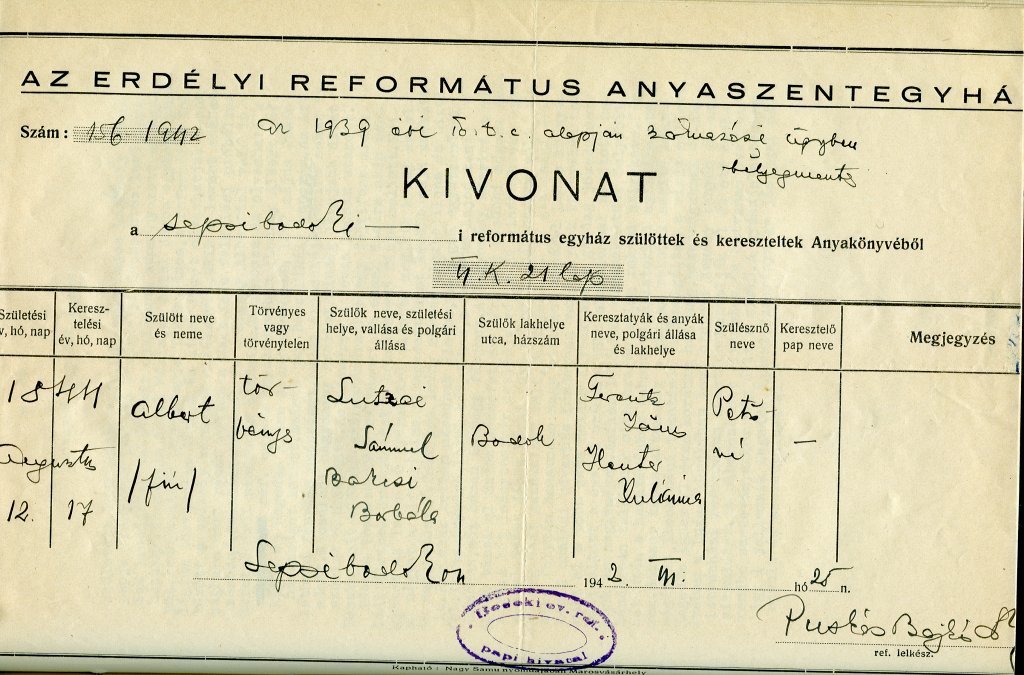 AZ ERDÉLYI REFORMÁTUS ANYASZENTEGYHÁ
Szám: 156 1942 Az 1939 évi alapján származási ügyben
bélyegmentes
KIVONAT
a sepsibodoki — i református egyház szülöttek és kereszteltek Anyakönyvéből
II K. 21 lap
Születési
év, hó, nap
Keresz-
telési
év, hó, nap
Szülött neve
és neme
Törvényes
vagy
törvénytelen
Szülők neve, születési
helye, vallása és polgári
állása
Szülők lakhelye
utca, házszám
Keresztatyák és anyák
neve, polgári állása
és lakhelye
Szülésznő
neve
Keresztelő
pap neve
Megjegyzés
1844
Augusztus
12. 17
Albert
/fiú/
tör-
vényes
Sámuel
Barcsi
Borbála
Bodok
Ferentz
János
Henter
Juliánna
Pető-
né
—
Sepsibodokon 1942. III. hó 25 n.
Puskás Bajkó
ref. lelkész.
ev. ref.
papi hivatal
Kapható: Nagy Samu nyomdájában Marosvásárhely